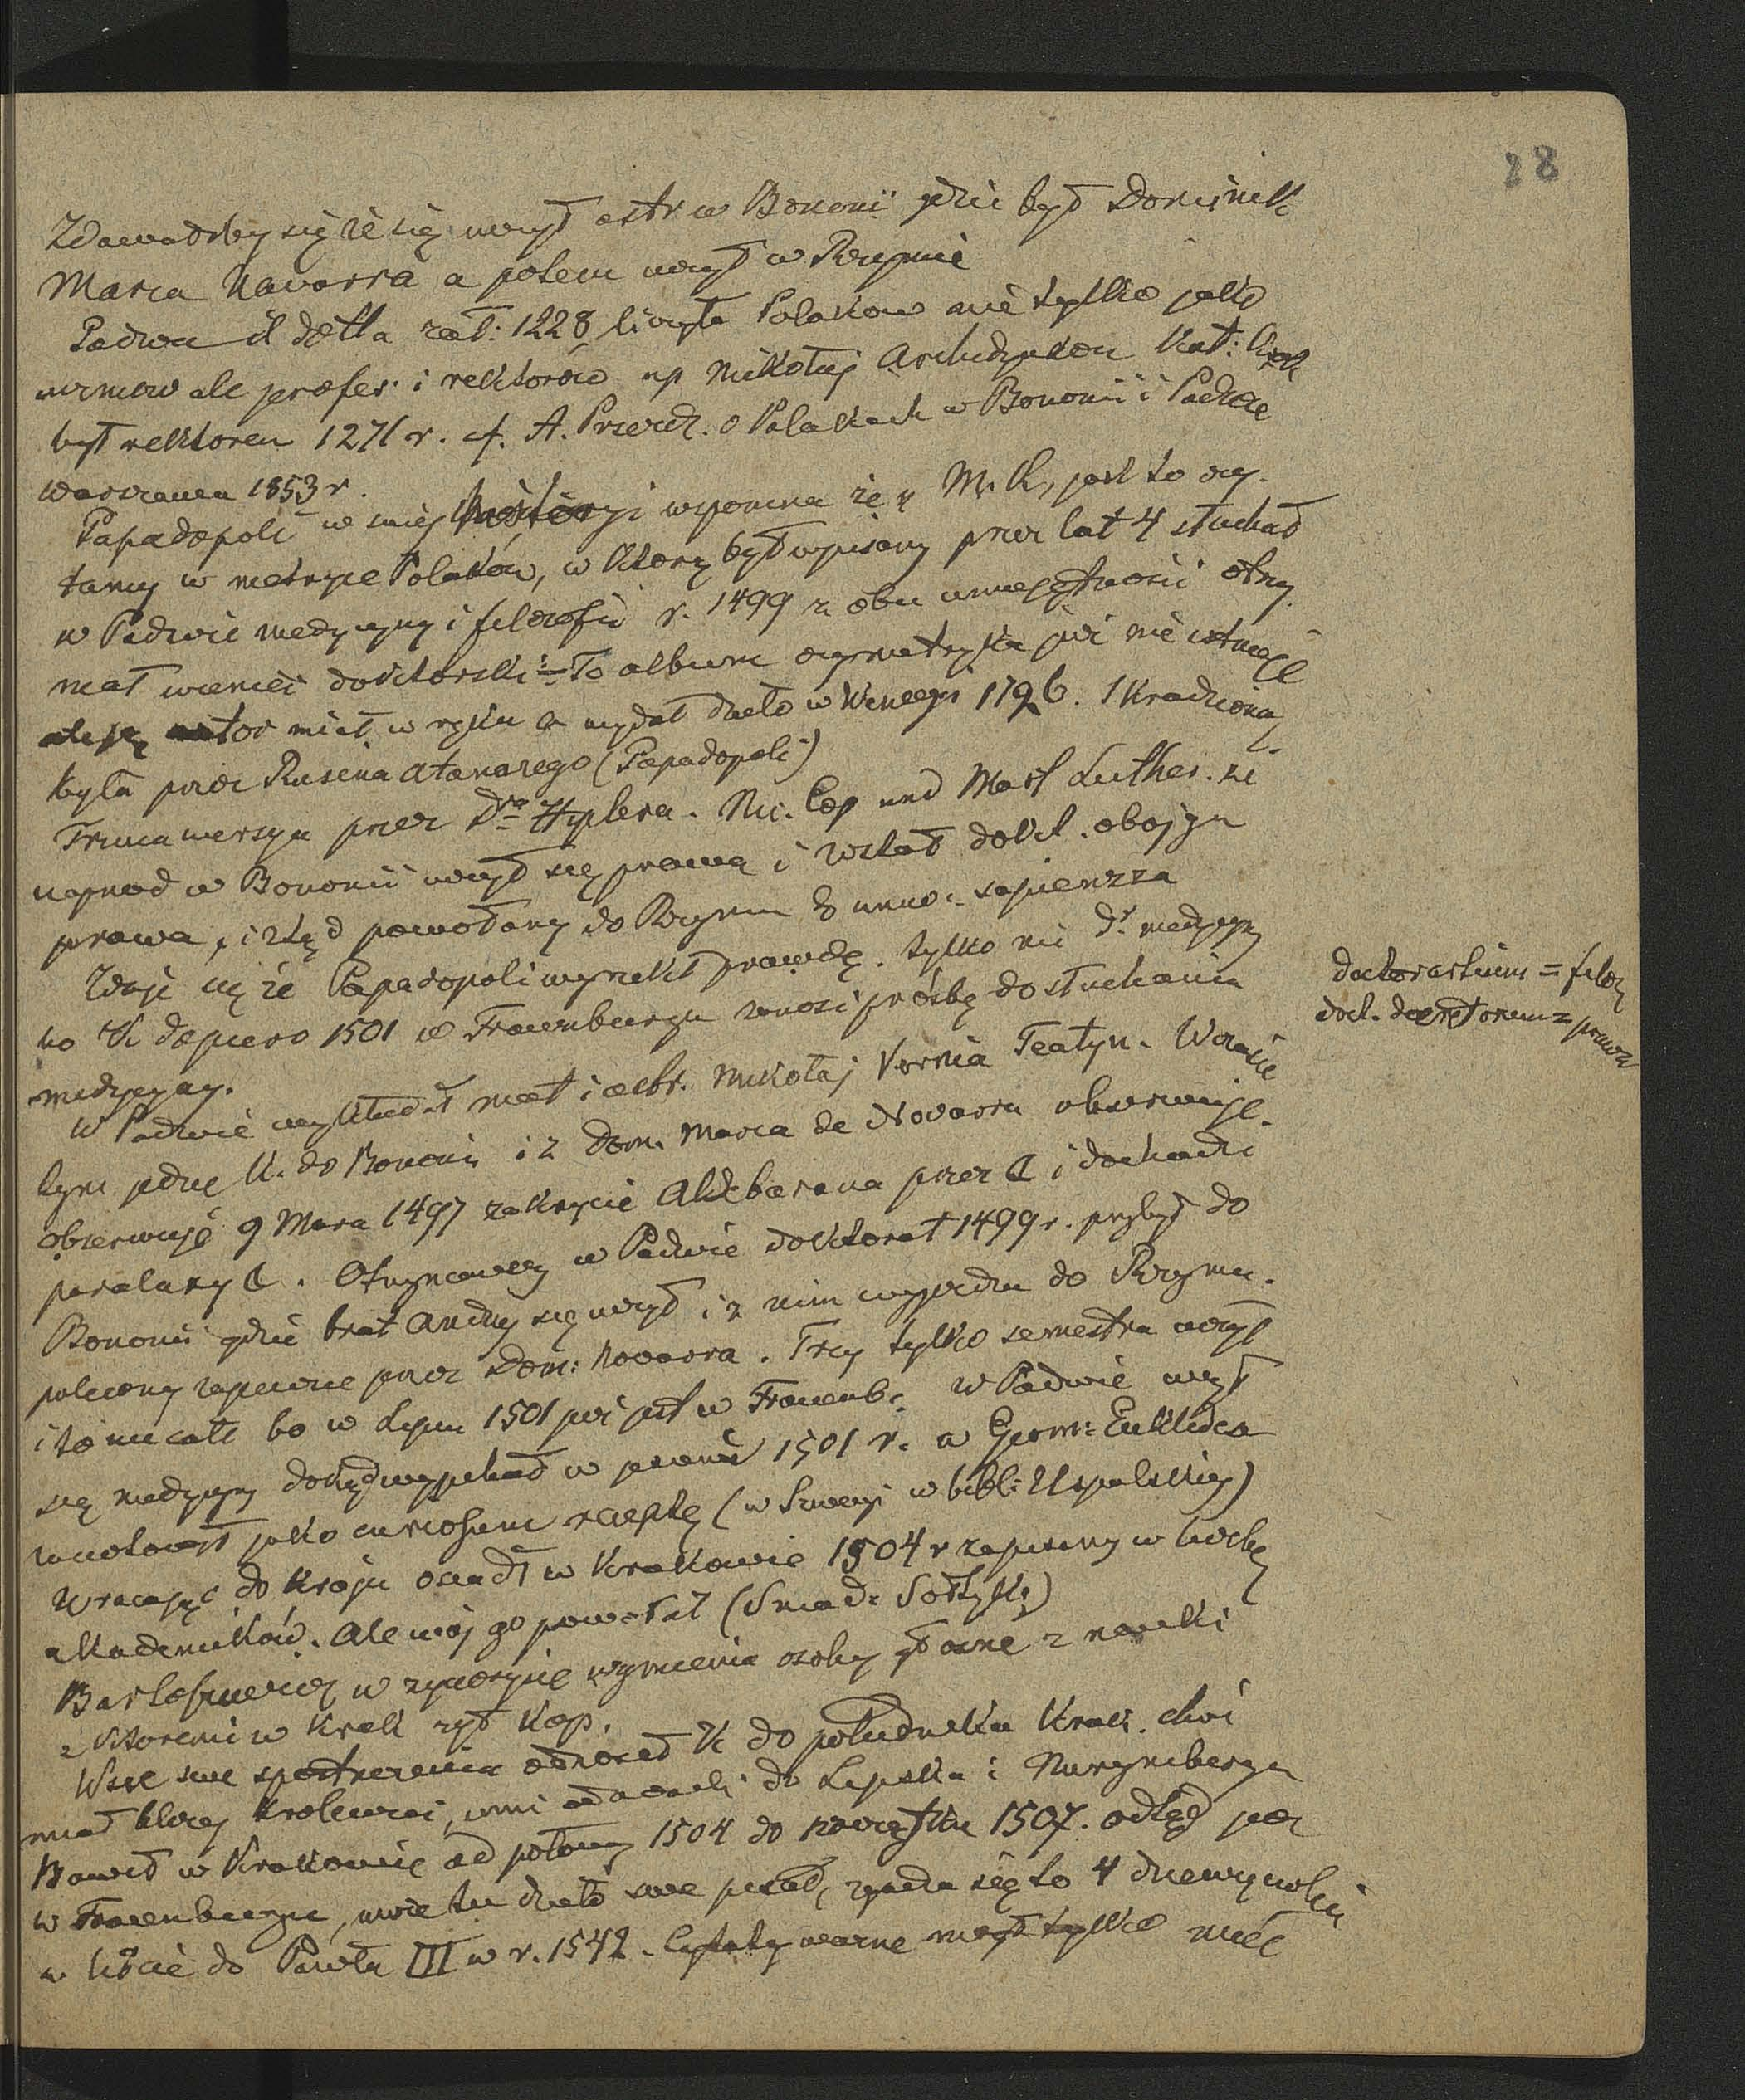 28
Zdawałoby się że się uczył astr w Bononii gdzie był Dominik
Maria Navarra a potem uczył w Rzymie
Padwa il dotta zał: 1228 liczyła Polakow nie tylko jako
uczniow ale profes. i rektorów np Mikołaj Archidyakon Kat: Krak
był rektorem 1271 r. cf. A. Przezdz. o Polakach w Bononii i Padwie
Warszawa 1853 r.
Papadopoli w swiej historyi wspomina że „ M. K, jest to czy-
tamy w metryce Polaków, w ktorą był wpisany przez lat 4 słuchał
w Padwie medycyny i filozofii r. 1499 z obu umiejętności otrzy
mał wieniec doktorski:= To album czy metryka już nie istnieje
ale ją autor miał w ręku a wydał dzieło w Wenecyi 1726. Skradzioną
była przez Rusina Atanazego (Papadopoli)
Trzecia wersya przez Dra Hiplera. Nic. Cop und Mart Luther. że
naprzod w Bononii uczył się prawa i został dokt. obojga
prawa, i ztąd powołany do Rzymu do uniw: sapienzza
Zdaje się że Papadopoli wyrzekł prawdę. tylko nie Dr medycyny
bo K dopiero 1501 w Frauenburgu wnosi prośbę do słuchania
medycyny.
W Padwie wykładał mat i astr. Mikołaj Vernia Teatyn. W czasie
tym jedzie K. do Bononii i z Dom. Maria de Novarra obserwuje.
obserwuje 9 Marca 1497 zakrycie Aldebarana przez ☾ i dochodzi
paralaxy ☾. Otrzymawszy w Padwie doktorat 1499 r. przybył do
Bononii gdzie brat Andrzej się uczył i z nim wyjezdza do Rzymu.
polecony zapewne przez Dom: Novarra. Trzy tylko semestra uczył
i to niecałe bo w Lipcu 1501 już jest w Frauenb: W Padwie uczył
się medycyny dokąd wyjechał w jesieni 1501 r. a Geom: Euklidesa
zanotował jako curiosum receptę (w Szwecyi w bibl: Upsalskiej)
Wracając do kraju osiadł w Krakowie 1504 r zapisany w liczbę
akademików. Ale wój go powołał (Sniad: Sołtyk)
Bartoszewicz w życiorysie wymienia osoby głośne z nauki
z ktoremi w Krak żył Kop.
Wsze swe spostrzeżenia odnosił K do południka Krak. choć
miał bliżej Krolewiec, inni odnosili do Lipska i Nurymberga
Bawił w Krakowie od połowy 1504 do początku 1507. odtąd jest
w Frauenburgu, może tu dzieło swe pisał, zgadza się to 4 dziewięciolecia
w liście do Pawła III w r. 1542. Cytaty ważne mógł tylko mieć
doctor artium = filozof
doct. decretorum = prawa